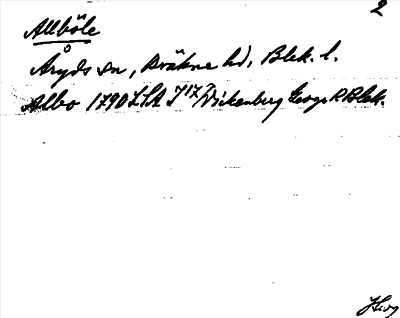 2
Allböle
Åryds sn, Bräkne hd, Blek. l.
Allbo 1790 LSA J 17 Wickenberg Geogr. R Blek.